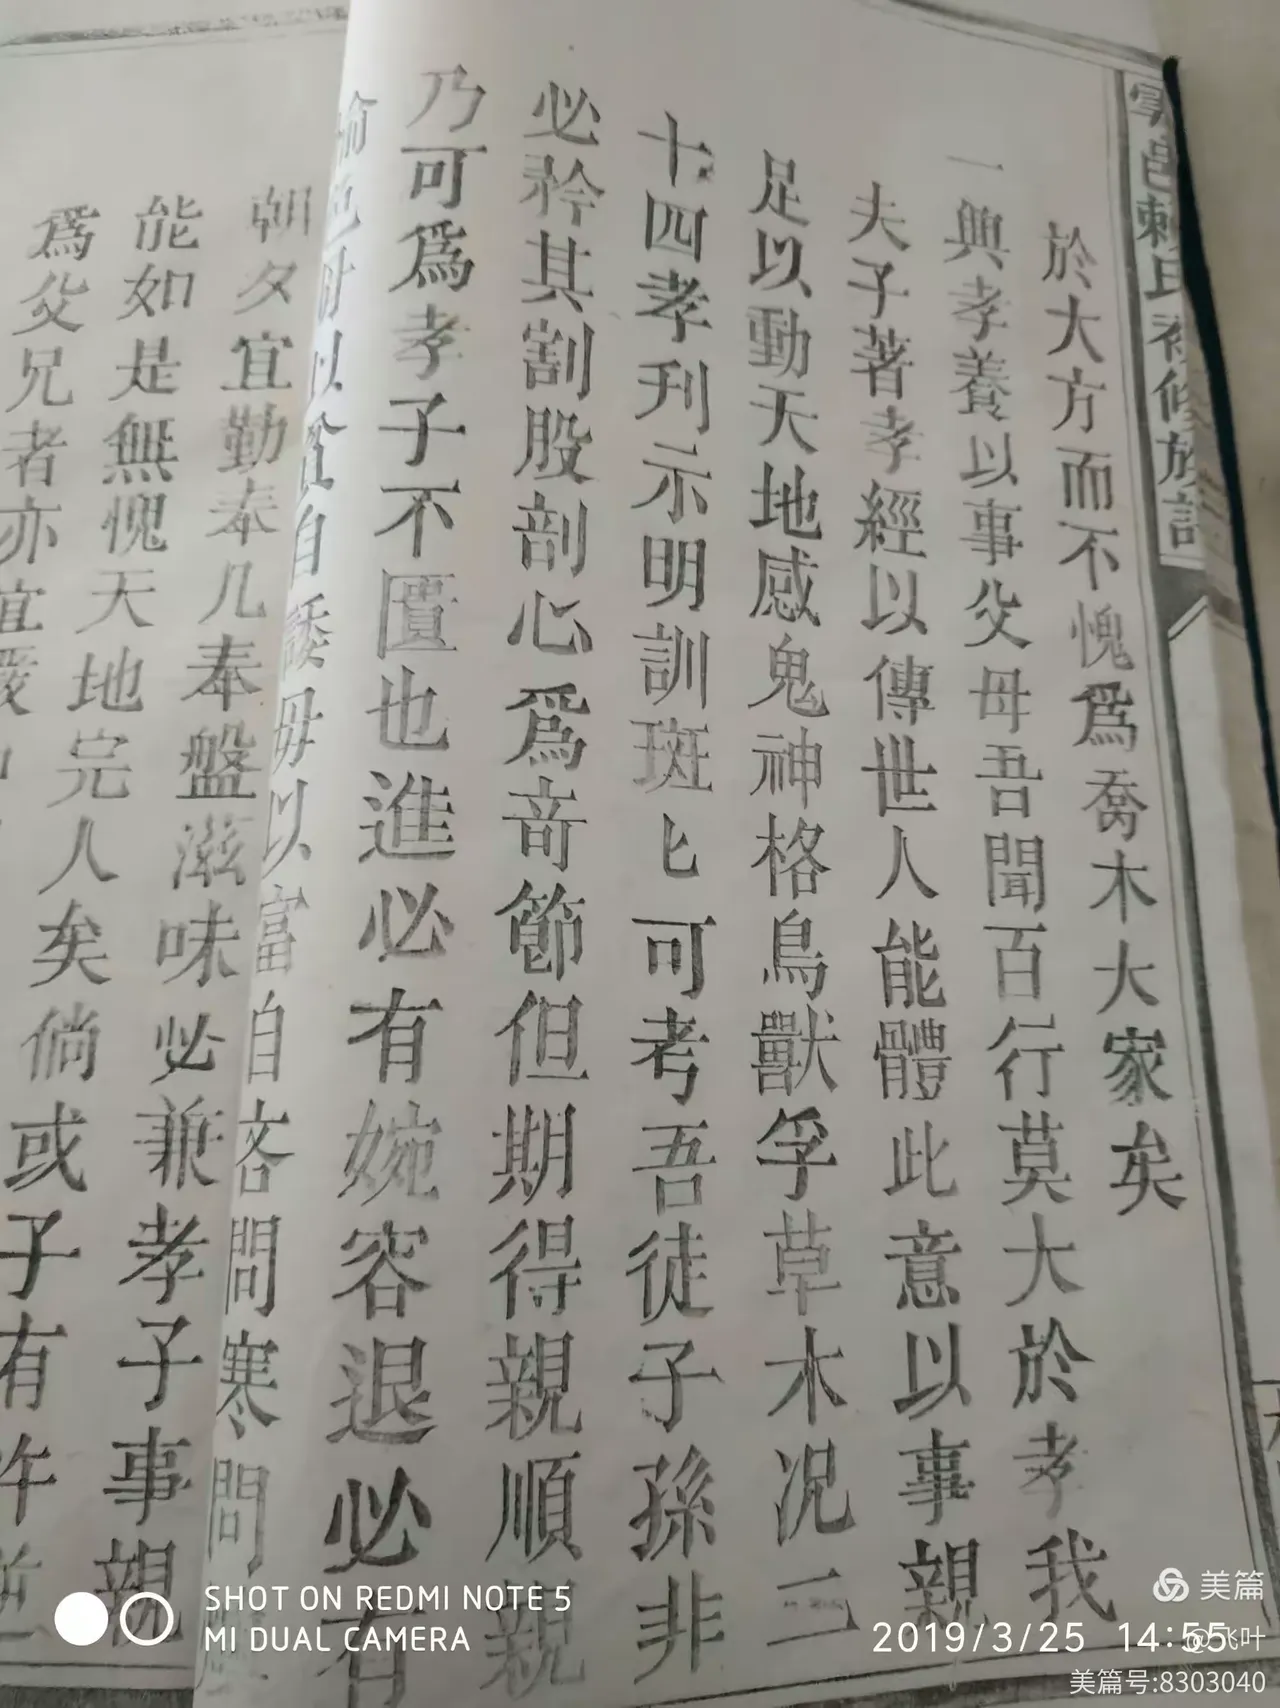 雩邑賴氏初修族譜
於大方而不愧爲喬木大家矣
一興孝養以事父母吾聞百行莫大於孝我
夫子著孝經以傳世人能體此意以事親
足以動天地感鬼神格鳥獸孚草木况二
十四孝刋示明訓斑匕可考吾徒子孫非
必矜其割股剖心爲竒節但期得親順親
乃可爲孝子不匱也進必有婉容退必有
愉色毋以貧自諉毋以富自吝問寒問
朝夕宜勤奉几奉盤滋味必兼孝子事親
能如是無愧天地完人矣倘或子有忤逆
爲父兄者亦宜嚴
SHOT ON REDMI NOTE 5
MI DUAL CAMERA
美篇
2019/3/25 14:55
@飞叶
美篇号:8303040